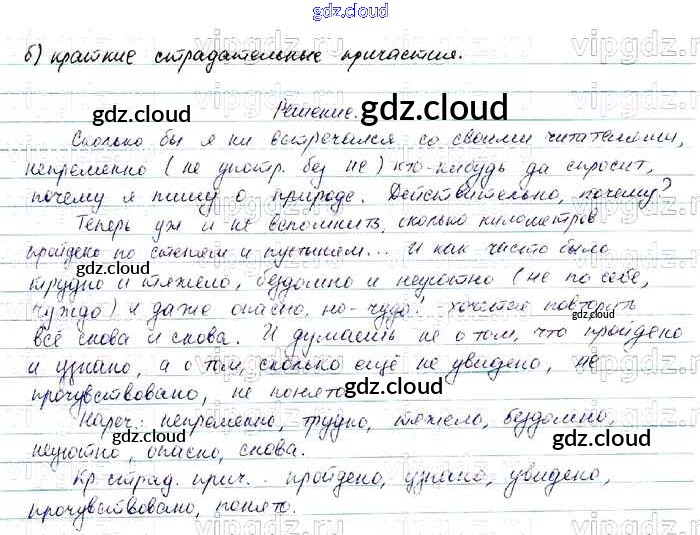 gdz.cloud
б) краткие страдательные причастия.
Решение.
gdz.cloud
gdz.cloud
Сколько бы я ни встречался со своими читателями,
непременно (не употр. без не) кто-нибудь да спросит,
почему я пишу о природе. Действительно, почему?
gdz.cloud
gdz.cloud
Теперь уж и не вспомнить, сколько километров
пройдено по степям и пустыням... И как часто было
gdz.cloud
трудно и тяжело, бездомно и неуютно (не по себе,
чуждо) и даже опасно, но-чудо! - хочется повторить
gdz.cloud
всё снова и снова. И думаешь не о том, что пройдено
и узнано, а о том, сколько ещё не увидено, не
прочувствовано, не понято.
gdz.cloud
Нареч.: непременно, трудно, тяжело, бездомно,
неуютно, опасно, снова.
gdz.cloud
Кр. страд. прич. - пройдено, узнано, увидено,
прочувствовано, понято.
gdz.cloud